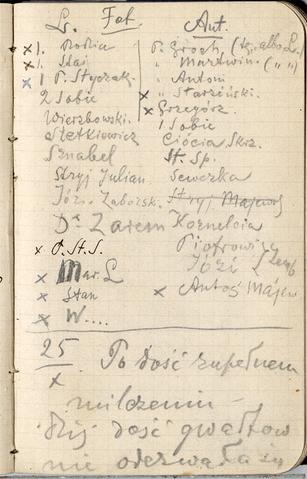 L. Fot. Ant.
x 1. Rodzia
x 1. Staś
x 1 P. Styczak.
2 Sobie
Wierzbowski.
Stetkiewicz
Sznabel
Stryj Julian
Józ. Zaborsk.
Dr Zarem
x P. St. S.
x Mar. L
x Stan
x W....
P. Groch, (tg. albo L.
" Martwin. ( " ")
" Antoni
x " Starzński
x Grzegórz.
1 Sobie
Ciocia Skrz.
St. Sp.
Seweczka
Stryj Majewos
Kornelcia
Piotrowicz
Józi
x Antoś Majew
25
x
Po dość zupełnem
milczeniu –
dość gwałtow
nie odezwała się